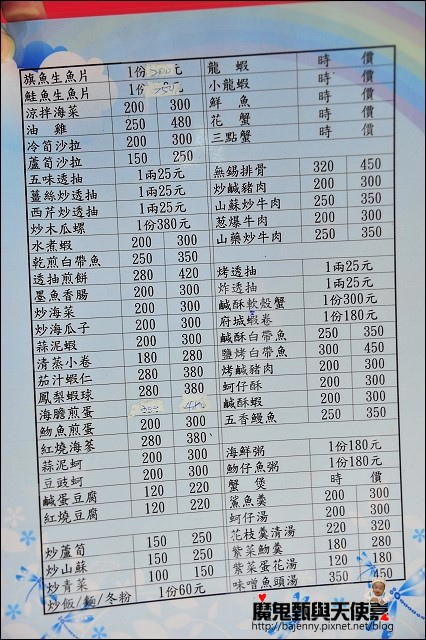 旗魚生魚片 1份 元
鮭魚生魚片 1份 元
涼拌海菜 200 300
油雞 250 480
冷筍沙拉 200 300
蘆筍沙拉 150 250
五味透抽 1兩25元
薑絲炒透抽 1兩25元
西芹炒透抽 1兩25元
炒木瓜螺 1份380元
水煮蝦 200 300
乾煎白帶魚 250 350
透抽煎餅 280 420
墨魚香腸 200 300
炒海菜 200 300
炒海瓜子 200 300
蒜泥蝦 200 300
清蒸小卷 180 280
茄汁蝦仁 280 380
鳳梨蝦球 280 380
海膽煎蛋
魩魚煎蛋 200 300
紅燒海蔘 280 380
蒜泥蚵 200 300
豆豉蚵 200 300
鹹蛋豆腐 120 220
紅燒豆腐 120 220
炒蘆筍 150 250
炒山蘇 150 250
炒青菜 100 150
炒飯/麵/冬粉 1份60元
龍蝦 時 價
小龍蝦 時 價
鮮魚 時 價
花蟹 時 價
三點蟹 時 價
無錫排骨 320 450
炒鹹豬肉 200 300
山蘇炒牛肉 250 350
蔥爆牛肉 200 300
山藥炒牛肉 250 350
烤透抽 1兩25元
炸透抽 1兩25元
鹹酥軟殼蟹 1份300元
府城蝦卷 1份180元
鹹酥白帶魚 250 350
鹽烤白帶魚 300 450
烤鹹豬肉 200 300
蚵仔酥 200 300
鹹酥蝦 200 300
五香鰻魚 250 350
海鮮粥 1份180元
魩仔魚粥 1份180元
蟹煲 時 價
鯊魚羹 200 300
蚵仔湯 200 300
花枝羹清湯 220 320
紫菜魩羹 180 280
紫菜蛋花湯 120 180
味噌魚頭湯 350 450
魔鬼甄與天使嘉
http://bajenny.pixnet.net/blog